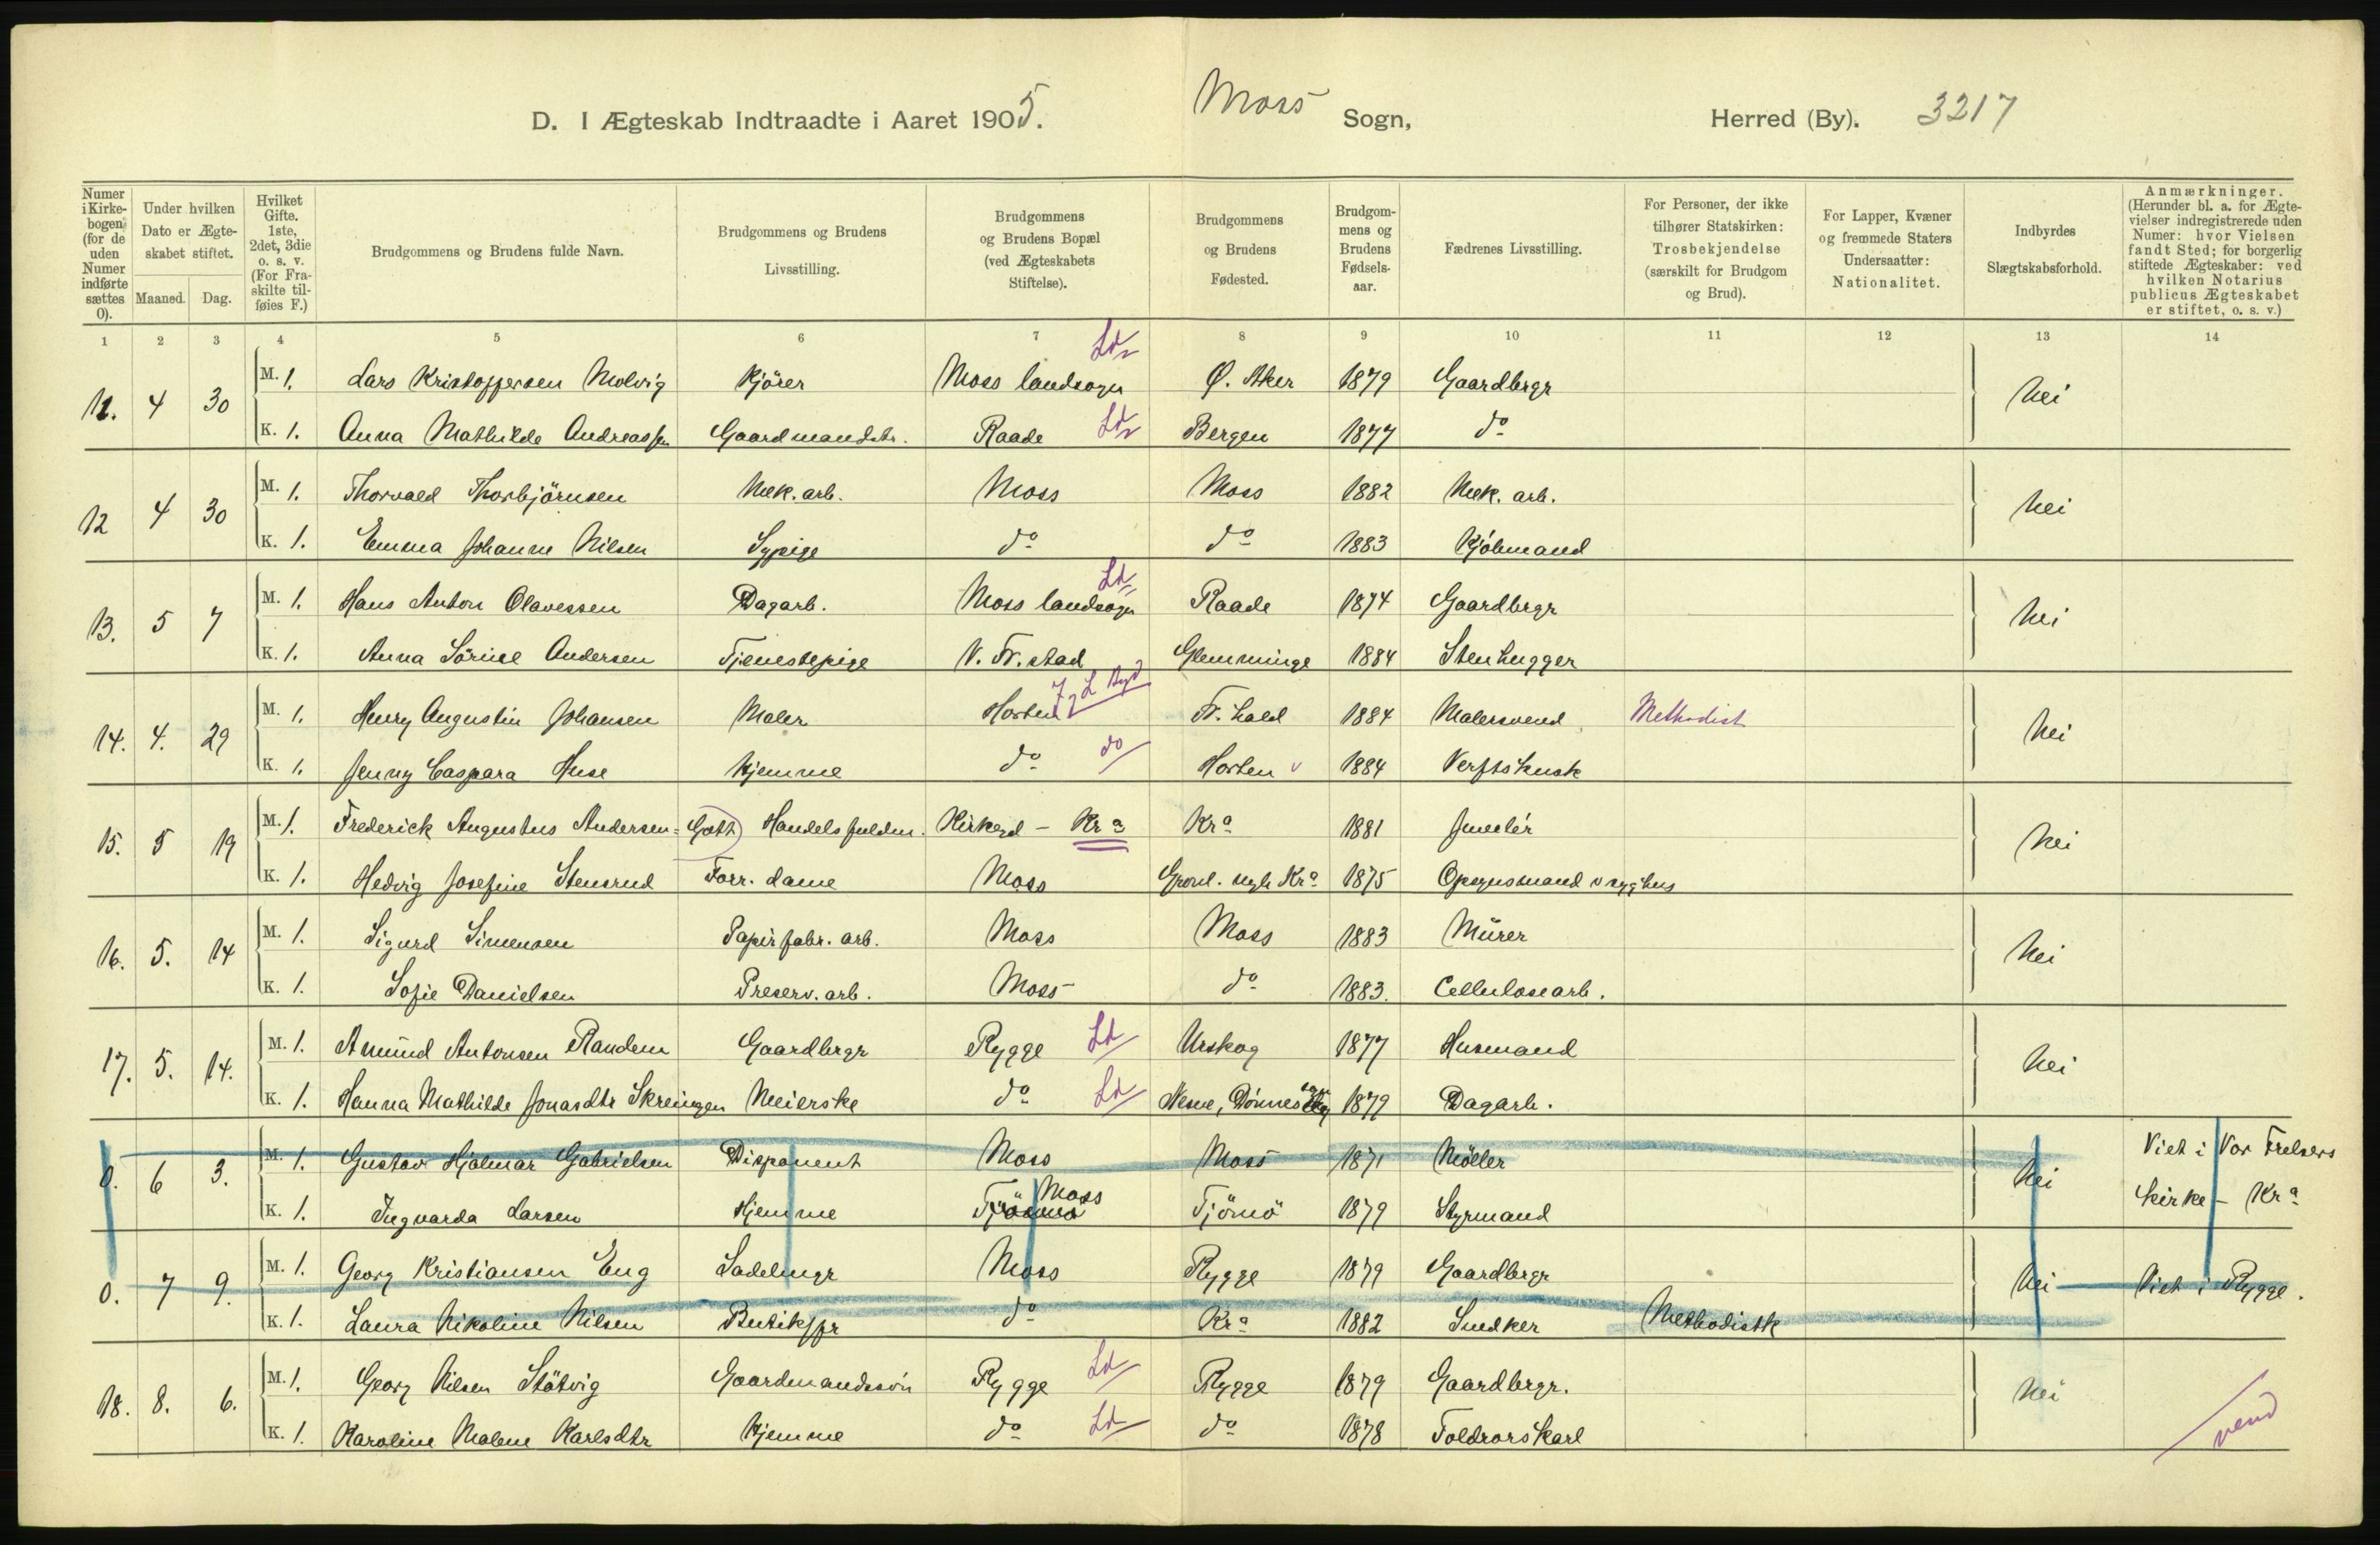 D. I Ægteskab Indtraadte i Aaret 1905. Moss Sogn, Herred (By). 3217
Numer i Kirkebogen (for de uden Numer indførte sættes 0). | Under hvilken Dato er Ægteskabet stiftet. Maaned. Dag. | Hvilket Gifte. 1ste, 2det, 3die o. s. v. (For Fraskilte tilføies F.) | Brudgommens og Brudens fulde Navn. | Brudgommens og Brudens Livsstilling. | Brudgommens og Brudens Bopæl (ved Ægteskabets Stiftelse). | Brudgommens og Brudens Fødested. | Brudgommens og Brudens Fødselsaar. | Fædrenes Livsstilling. | For Personer, der ikke tilhører Statskirken: Trosbekjendelse (særskilt for Brudgom og Brud). | For Lapper, Kvæner og fremmede Staters Undersaatter: Nationalitet. | Indbyrdes Slægtskabsforhold. | Anmærkninger. (Herunder bl. a. for Ægtevielser indregistrerede uden Numer: hvor Vielsen fandt Sted; for borgerlig stiftede Ægteskaber: ved hvilken Notarius publicus Ægteskabet er stiftet, o. s. v.)
1 2 3 4 5 6 7 8 9 10 11 12 13 14
11. 4 30 M. 1. Lars Kristoffersen Molvig Kjörer Moss landsogn Ld Ø. Aker 1879 Gaardbrgr nei
K. 1. Anna Mathilde Andreassen Gaardmandsdtr. Raade Ld Bergen 1877 do
12 4 30 M. 1. Thorvald Thorbjörnsen Mek. arb. Moss Moss 1882 Mek. arb. nei
K. 1. Emma Johanne Nilsen Sypige do do 1883 Kjöbmand
13. 5 7 M. 1. Hans Anton Olavessen Dagarb. Moss landsogn Ld Raade 1874 Gaardbrgr nei
K. 1. Anna Sörine Andersen Tjenestepige V. Fr.stad Glemminge 1884 Stenhugger
14. 4. 29 M. 1. Henry Augustin Johansen Maler Horten Fr. hald 1884 Malersvend Methodist nei
K. 1. Jenny Caspara Huse hjemme do do Horten 1884 Verftskusk
15. 5 19 M. 1. Frederick Augustus Andersen=Gott) Handelsfuldm. Kirkegd - Kra Kra 1881 Juvelér nei
K. 1. Hedvig Josefine Stensrud Forr. dame Moss Kra 1875
16. 5. 14 M. 1. Sigurd Simensen Papirfabr. arb. Moss Moss 1883 Mürer nei
K. 1. Sofie Danielsen Preserv. arb. Moss do 1883. Cellulosearb.
17. 5. 14. M. 1. Amünd Antonsen Randem Gaardbrgr Rygge Ld Urskog 1877 Husmand nei
K. 1. Hanna Mathilde Jonasdtr Skreingen Meierske do Ld Nesne, Dönnes 1879 Dagarb.
0. 6 3. M. 1. Gustav Hjalmar Gabrielsen Disponent Moss Moss 1871 Möller nei Viet i Vor Frelsers
K. 1. Ingvarda Larsen Hjemme Moss Tjömö 1879 Styrmand kirke - Kra
0. 7 9. M. 1. Georg Kristiansen Eng Sadelmgr Moss Rygge 1879 Gaardbrgr nei Viet i Rygge.
K. 1. Laura Nikoline Nilsen Butikjfr do Kra 1882 Snedker Methodistk
18. 8. 6. M. 1. Georg Nilsen Stötvig Gaardmandssön Rygge Ld Rygge 1879 Gaardbrgr. nei
K. 1. Karoline Malene Karlsdtr hjemme do Ld do 1878 Toldrorskarl
vend